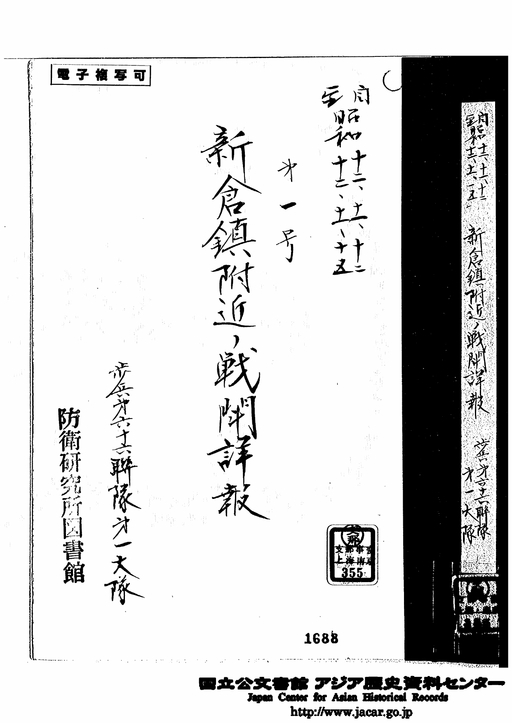 電子複写可
自昭和十二、十一、十二
至〃十二、十一、十五
第一号
新倉鎮附近ノ戦闘詳報
歩兵第六十六聯隊第一大隊
防衛研究所図書館
355
1688
新倉鎮附近ノ戦闘詳報
歩兵第六十六聯隊
第一大隊
国立公文書館 アジア歴史資料センター
Japan Center for Asian Historical Records
http://www.jacar.go.jp